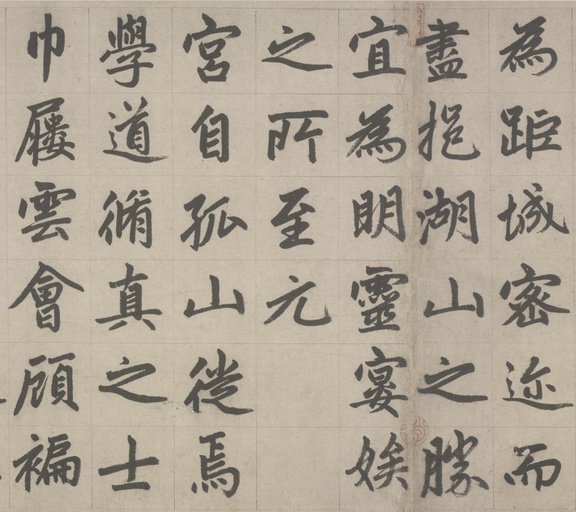 為距城密迩而
盡挹湖山之勝
宜為明靈宴娭
之所至元
宮自孤山徙焉
學道脩真之士
巾屨雲會顧褊